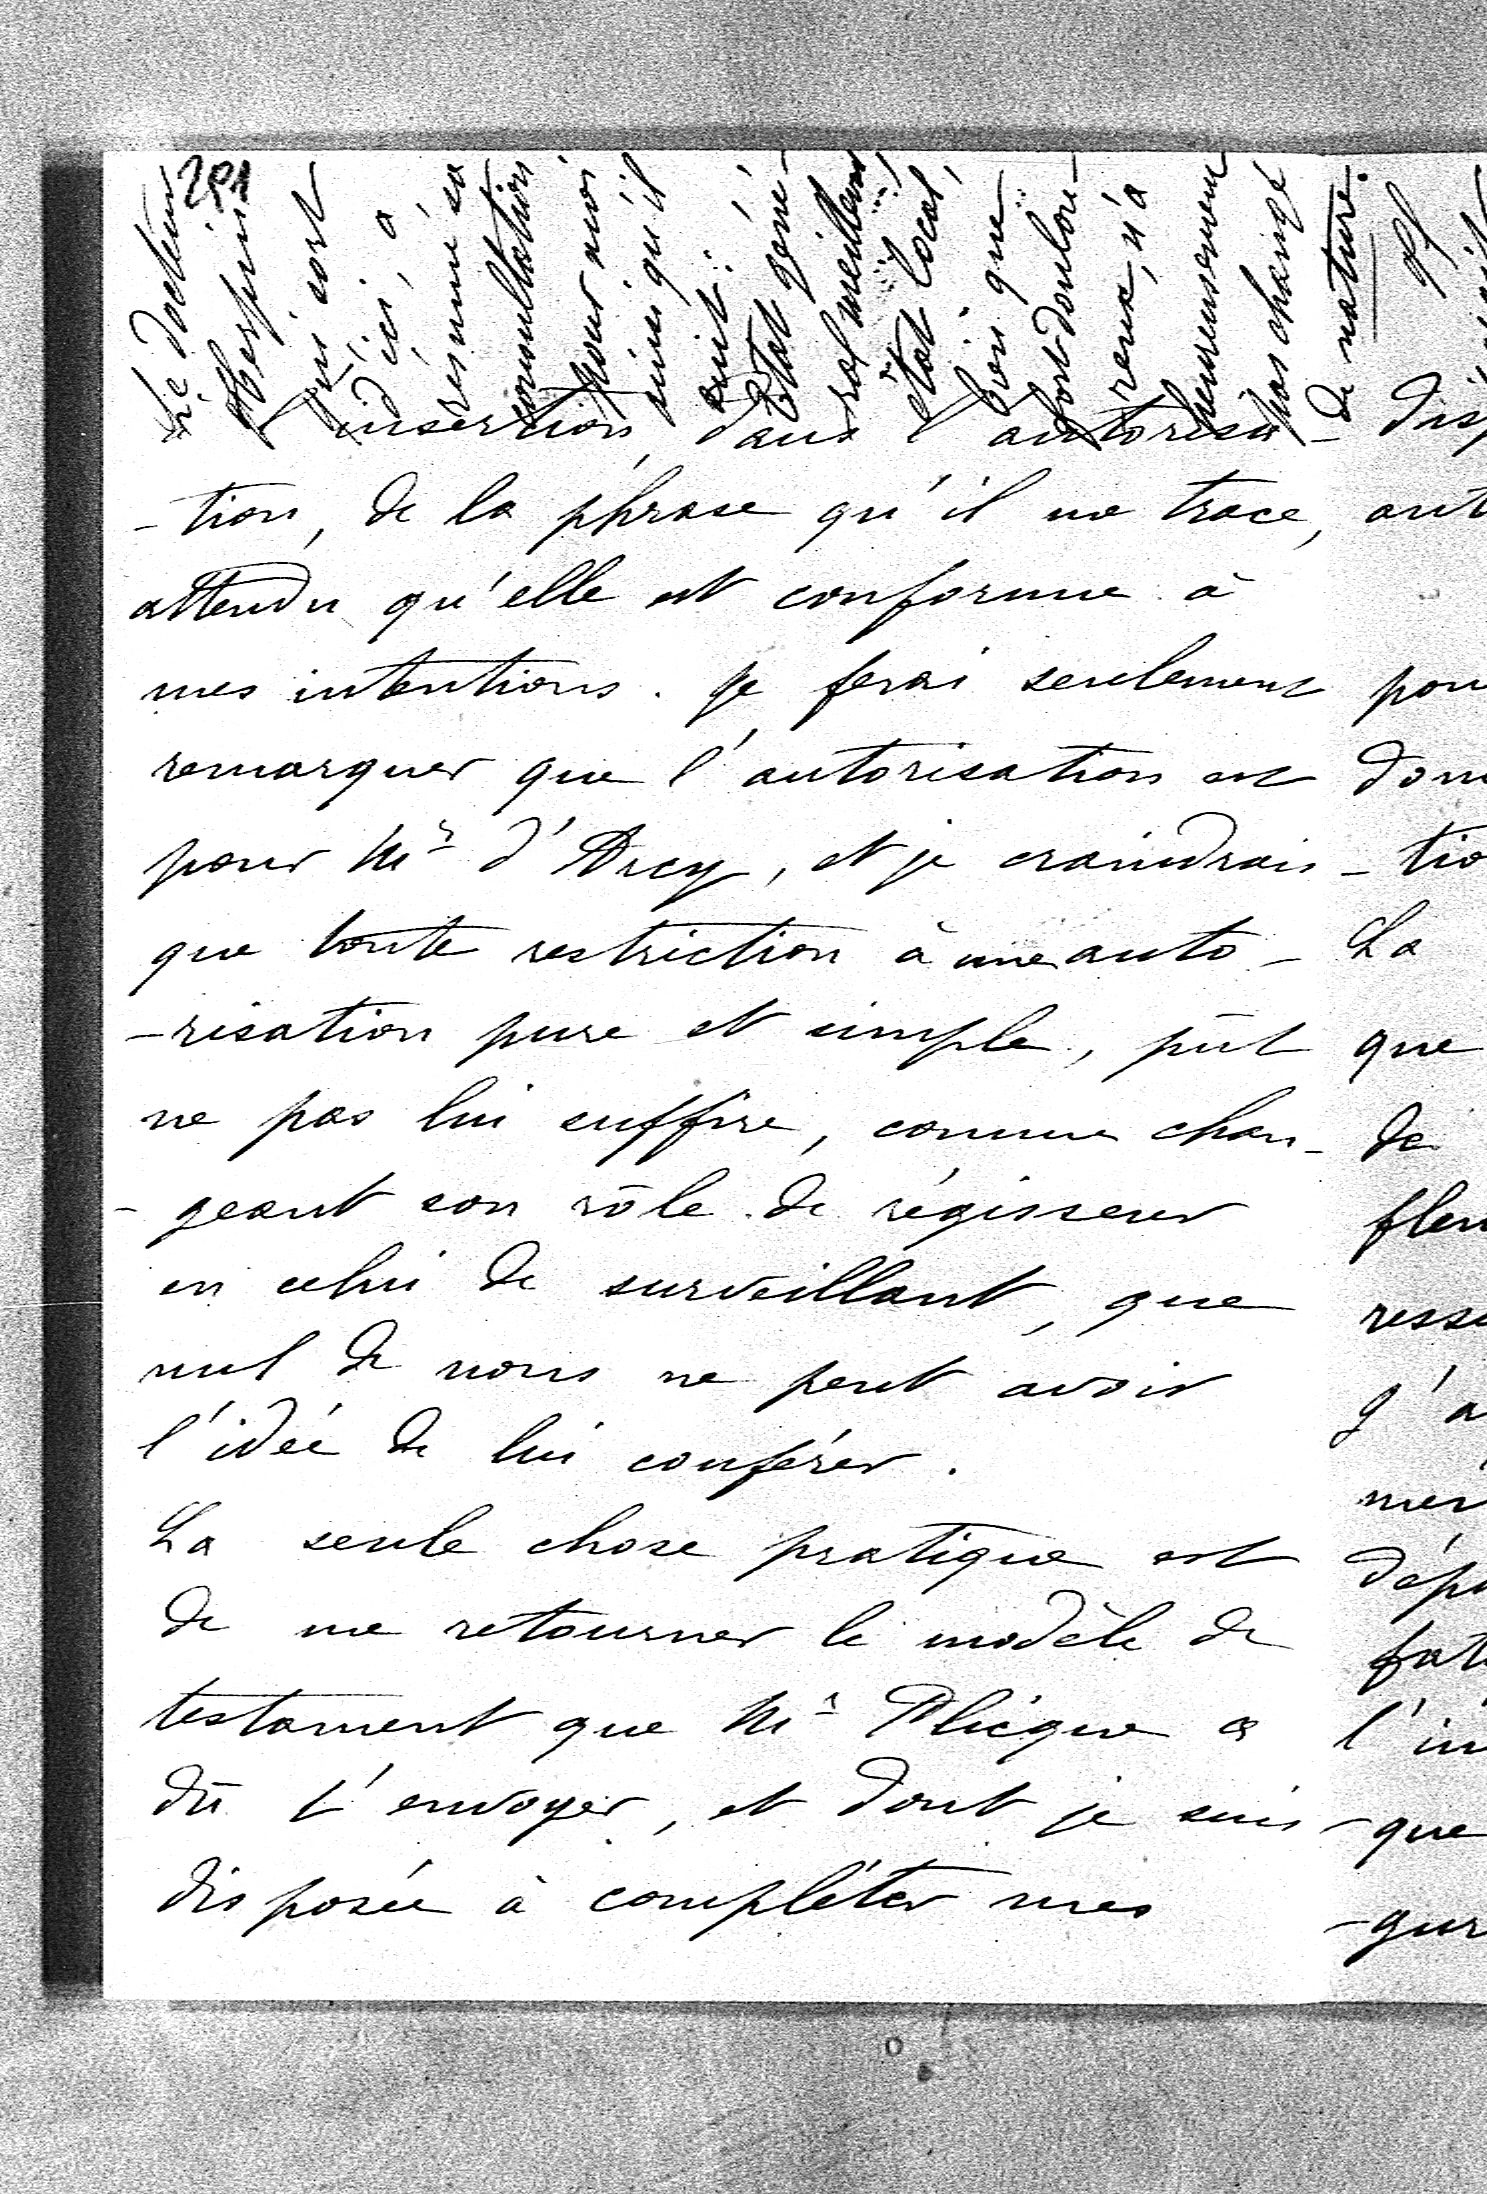 201
Le docteur
Herpin
qui sort
d'ici, a
résumé sa
consultation
pour moi
ainsi qu'il
suit :
Etat géné-
ral meilleur,
état local,
bien que
fort doulou-
reux, n'a
heureusement
pas changé
de nature.
l'insertion, dans l'autorisa-
-tion, de la phrase qu'il me trace,
attendu qu'elle est conforme à
mes intentions. Je ferai seulement
remarquer que l'autorisation est
pour Mr d'Arcy, et je craindrais
que toute restriction à une auto-
-risation pure et simple, pût
ne pas lui suffire, comme chan-
-geant son rôle de régisseur
en celui de surveillant, que
nul de nous ne peut avoir
l'idée de lui conférer.
La seule chose pratique est
de me retourner le modèle de
testament que Mr Plicque a
dû t'envoyer, et dont je suis
disposée à compléter mes
La
que
de